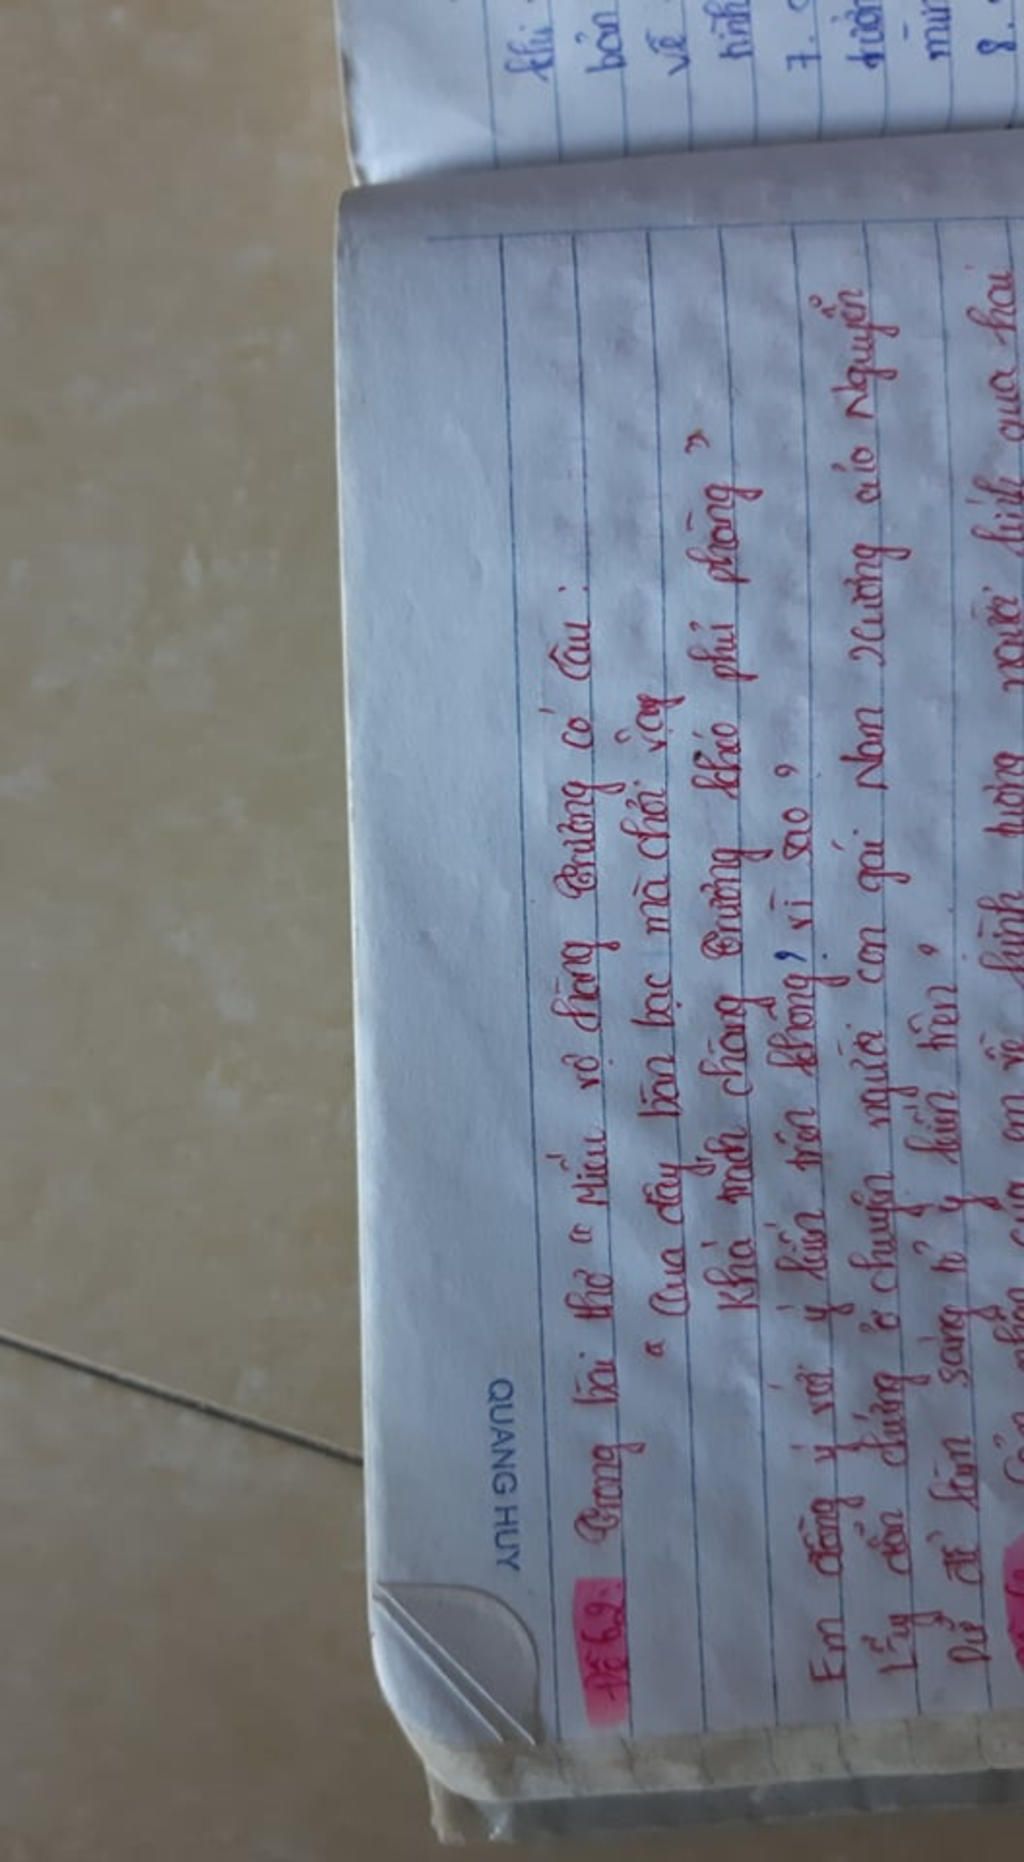 QUANG HUY
Đề 62: Trong bài thơ " Miếu vợ chàng Trương có câu:
" Qua đây bàn bạc mà chơi vậy
Khá trách chàng Trương khéo phũ phàng "
Em đồng ý với ý kiến trên không? vì sao?
Lấy dẫn chứng ở chuyện người con gái Nam Xương của Nguyễn
Dữ để làm sáng tỏ ý kiến trên?
của em về hình tượng người lính qua hai
khi
bản
về
tình
7.
mìn
8.